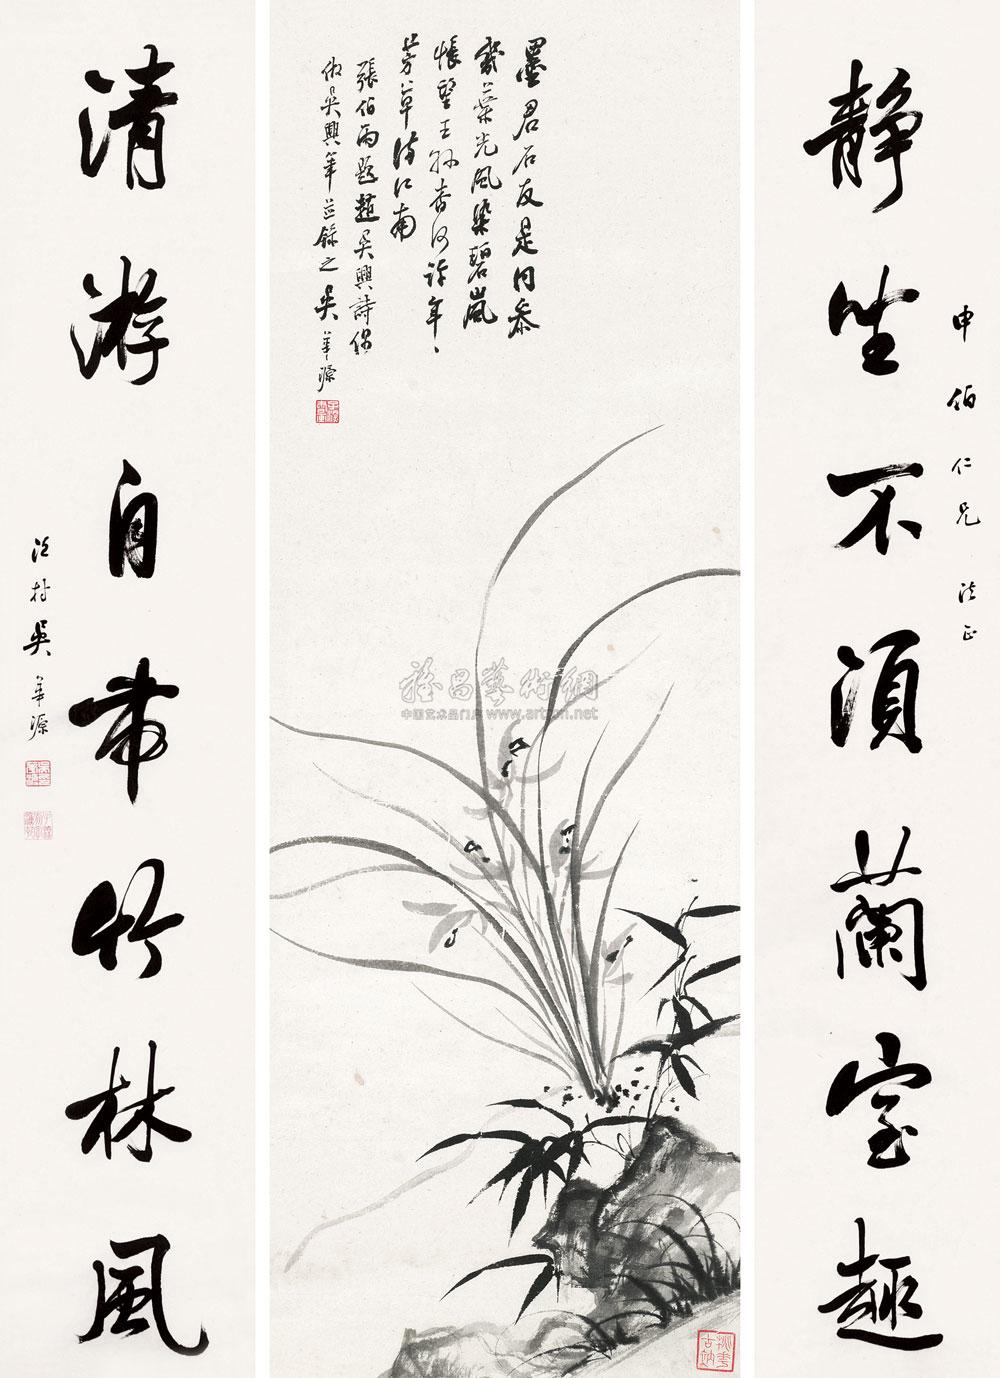 靜坐不須蘭室趣
申伯仁兄法正
墨君石友是同參
幾葉光風染碧嵐
悵望王孫杳何許年、
芳草滿江南
張伯雨題趙吳興詩偶
仿吳興筆並錄之吳華源
清游自帶竹林風
漁村吳華源
中国艺术品门户www.artxun.net